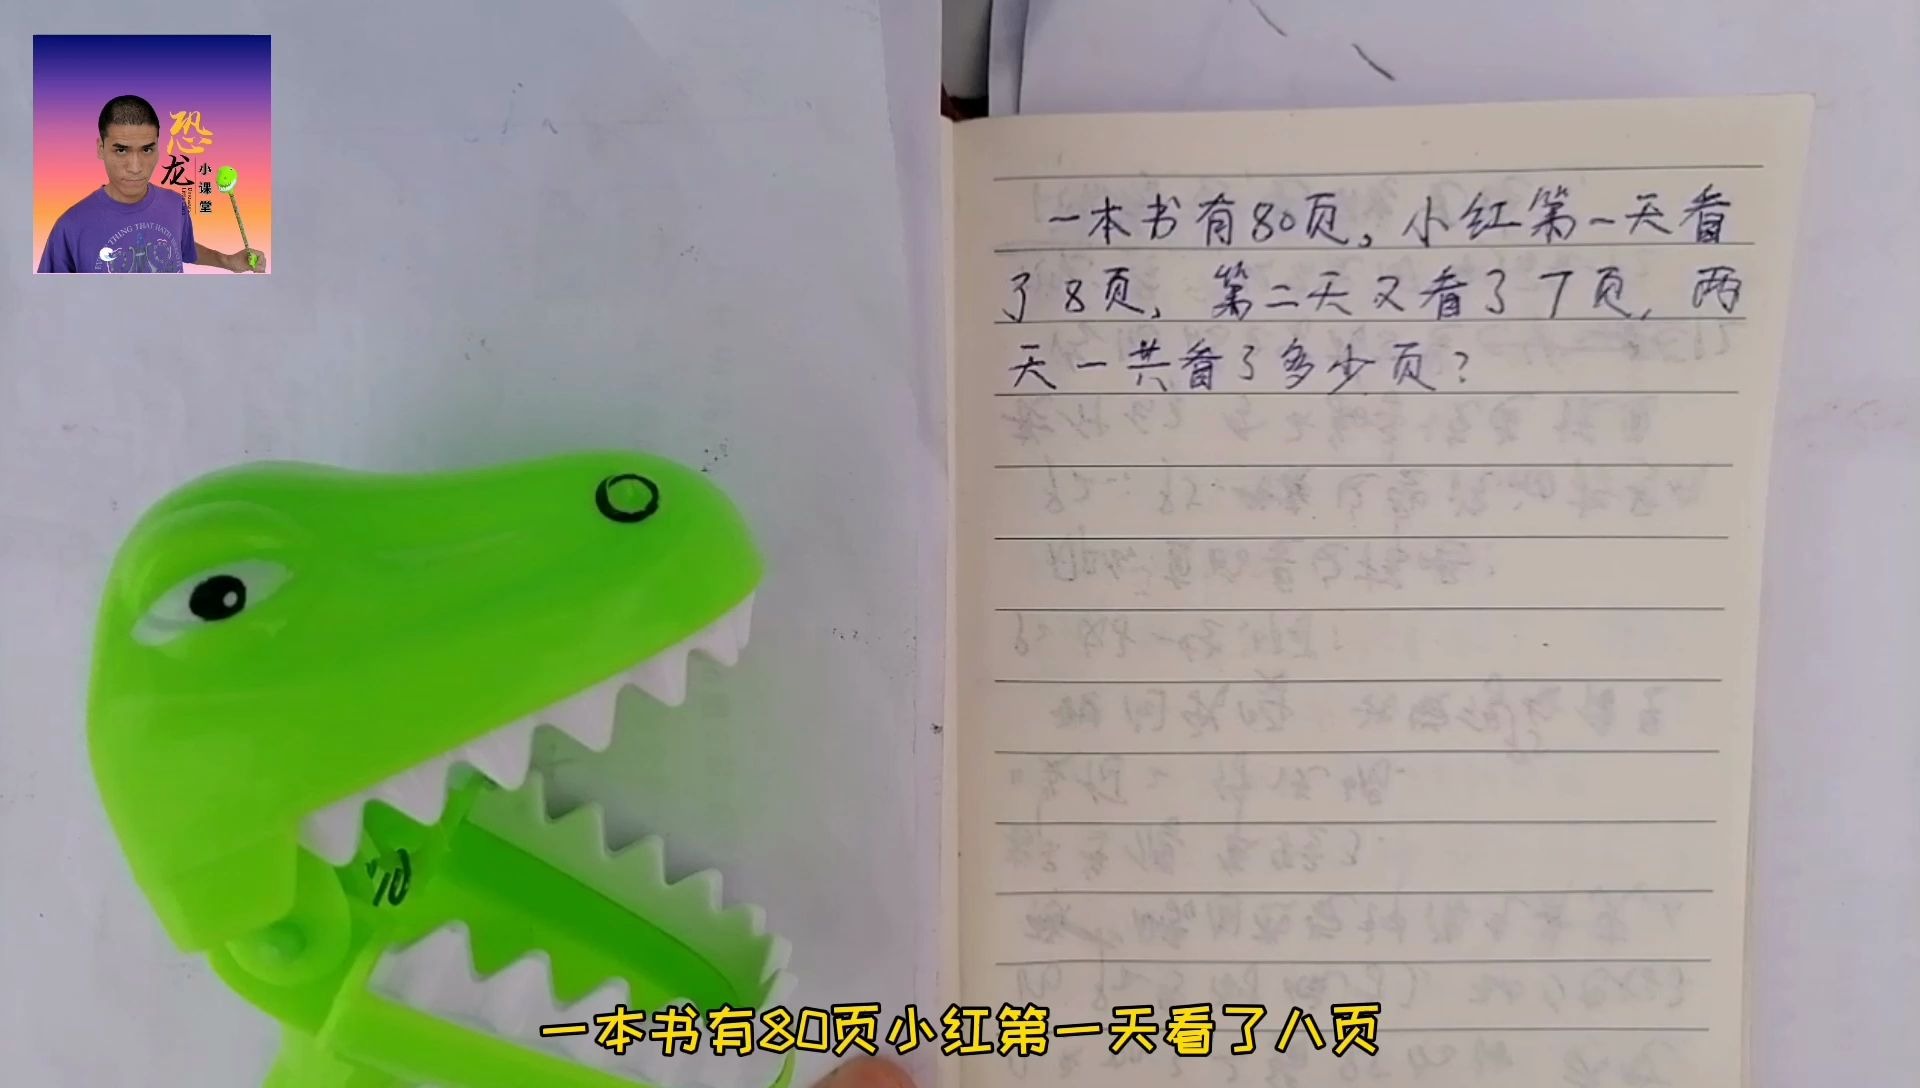 恐龙
小课堂
一本书有80页，小红第一天看
了8页，第二天又看了7页，两
天一共看了多少页？
一本书有80页小红第一天看了八页